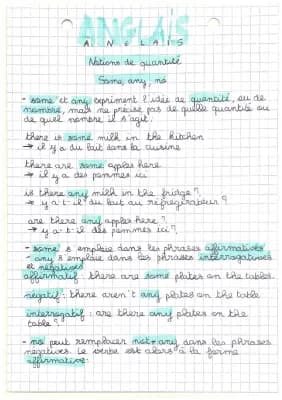 ANGLAIS
ANGLAIS
Notions de quantité
Some, any, no
- some et any expriment l'idée de quantité, ou de
nombre, mais ne précise pas de quelle quantité ou
de quel nombre il s'agit.
there is some milk in the kitchen
→ il y a du lait dans la cuisine
there are some apples here
→ il y a des pommes ici
is there any milk in the fridge ?
→ y a-t-il du lait au réfrigérateur ?
are there any apples here ?
→ y a-t-il des pommes ici ?
- some s'emploie dans les phrases affirmatives
- any s'emploie dans les phrases interrogatives
et négatives
affirmatif : there are some plates on the tables.
négatif : there aren't any plates on the table
interrogatif : are there any plates on the
table ?
- no peut remplacer not+any dans les phrases
négatives. Le verbe est alors à la forme
affirmative: